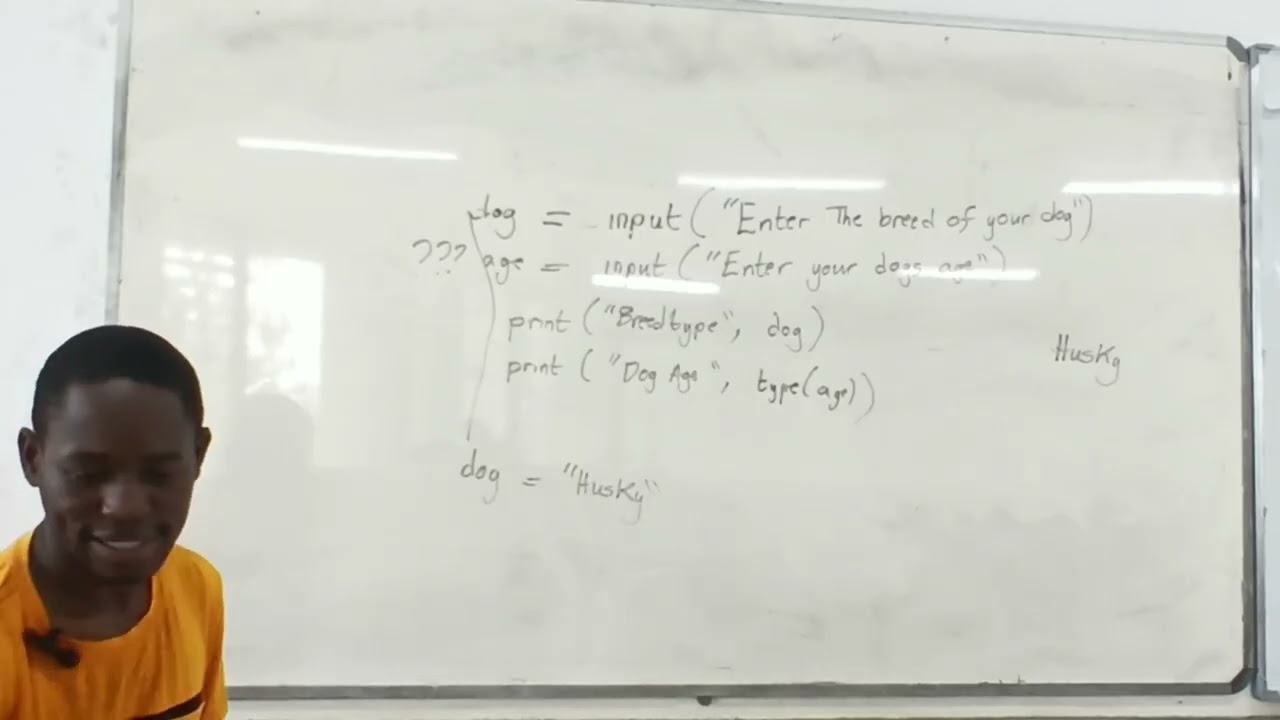 dog = input("Enter The breed of your dog")
??? age = input("Enter your dogs age")
print("Breedtype", dog)
print("Dog Age", type(age))
Husky
dog = "Husky"